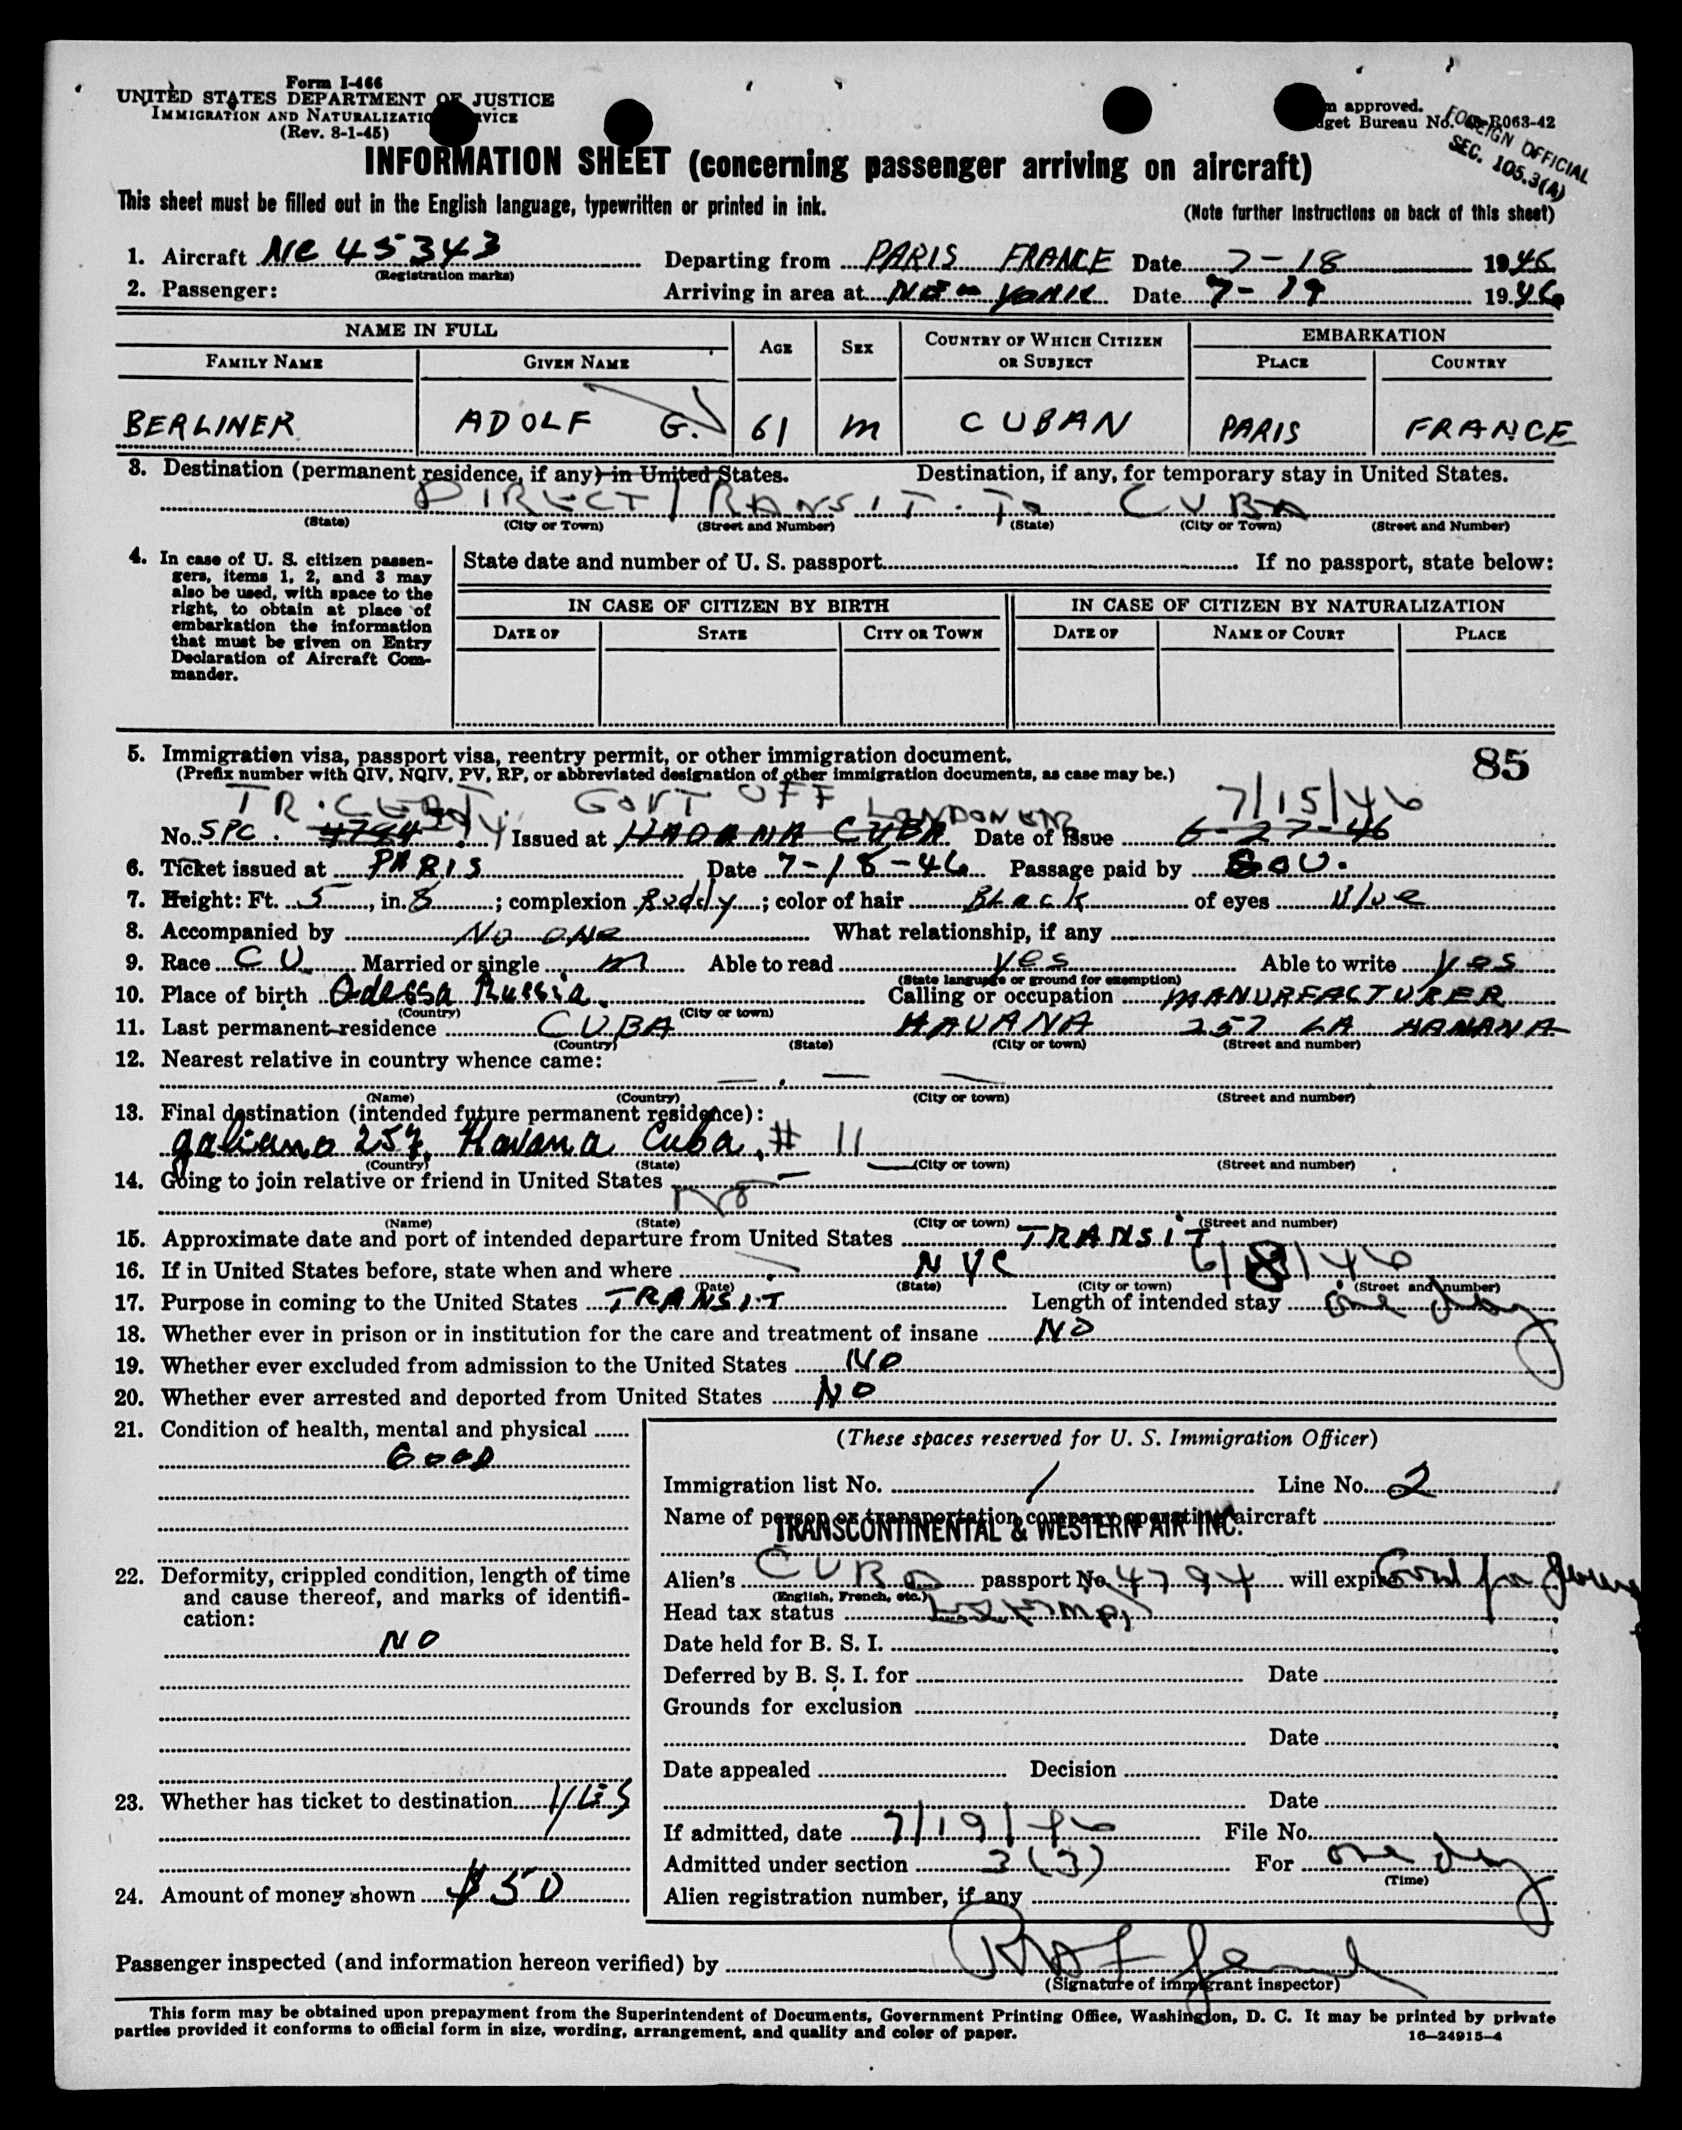 Form I-466
UNITED STATES DEPARTMENT OF JUSTICE
IMMIGRATION AND NATURALIZATION SERVICE
(Rev. 8-1-45)
approved.
get Bureau No. R063-42
FOREIGN OFFICIAL
SEC. 105.3(A)
INFORMATION SHEET (concerning passenger arriving on aircraft)
This sheet must be filled out in the English language, typewritten or printed in ink.
(Note further instructions on back of this sheet)
1. Aircraft NC 45343 Departing from PARIS FRANCE Date 7-18 1946
(Registration marks)
2. Passenger: Arriving in area at New York Date 7-19 1946
NAME IN FULL AGE SEX COUNTRY OF WHICH CITIZEN OR SUBJECT EMBARKATION
FAMILY NAME GIVEN NAME PLACE COUNTRY
BERLINER ADOLF G. 61 M CUBAN PARIS FRANCE
3. Destination (permanent residence, if any) in United States. Destination, if any, for temporary stay in United States.
DIRECT TRANSIT TO CUBA
(State) (City or Town) (Street and Number) (State) (City or Town) (Street and Number)
4. In case of U. S. citizen passengers, items 1, 2, and 3 may also be used, with space to the right, to obtain at place of embarkation the information that must be given on Entry Declaration of Aircraft Commander.
State date and number of U. S. passport If no passport, state below:
IN CASE OF CITIZEN BY BIRTH IN CASE OF CITIZEN BY NATURALIZATION
DATE OF STATE CITY OR TOWN DATE OF NAME OF COURT PLACE
5. Immigration visa, passport visa, reentry permit, or other immigration document. 85
(Prefix number with QIV, NQIV, PV, RP, or abbreviated designation of other immigration documents, as case may be.)
TR. CERT. GOVT OFF LONDON 7/15/46
No. SPC. 4794 Issued at HABANA CUBA Date of Issue 6-27-46
6. Ticket issued at PARIS Date 7-18-46 Passage paid by GOV.
7. Height: Ft. 5, in. 8; complexion Ruddy; color of hair Black of eyes Blue
8. Accompanied by No one What relationship, if any
9. Race CU. Married or single M Able to read yes Able to write yes
(State language or ground for exemption)
10. Place of birth Odessa Russia. Calling or occupation MANURFACTURER
(Country) (City or town)
11. Last permanent residence CUBA HAVANA 257 LA HANANA
(Country) (State) (City or town) (Street and number)
12. Nearest relative in country whence came:
(Name) (Country) (City or town) (Street and number)
13. Final destination (intended future permanent residence):
galiano 257, Havana Cuba, # 11
(Country) (State) (City or town) (Street and number)
14. Going to join relative or friend in United States
No
(Name) (State) (City or town) (Street and number)
15. Approximate date and port of intended departure from United States TRANSIT
16. If in United States before, state when and where NYC 6/8/46
(Date) (State) (City or town) (Street and number)
17. Purpose in coming to the United States TRANSIT Length of intended stay one day
18. Whether ever in prison or in institution for the care and treatment of insane NO
19. Whether ever excluded from admission to the United States NO
20. Whether ever arrested and deported from United States NO
21. Condition of health, mental and physical
GOOD
22. Deformity, crippled condition, length of time and cause thereof, and marks of identification:
NO
23. Whether has ticket to destination YES
24. Amount of money shown $50
(These spaces reserved for U. S. Immigration Officer)
Immigration list No. 1 Line No. 2
Name of person or transportation company operating aircraft
TRANSCONTINENTAL & WESTERN AIR INC.
Alien's CUBA passport No. 4794 will expire Good for
(English, French, etc.)
Head tax status Exempt
Date held for B. S. I.
Deferred by B. S. I. for Date
Grounds for exclusion
Date
Date appealed Decision
Date
If admitted, date 7/19/46 File No.
Admitted under section 3 (3) For one day
(Time)
Alien registration number, if any
Passenger inspected (and information hereon verified) by
(Signature of immigrant inspector)
This form may be obtained upon prepayment from the Superintendent of Documents, Government Printing Office, Washington, D. C. It may be printed by private
parties provided it conforms to official form in size, wording, arrangement, and quality and color of paper. 16—24915-4